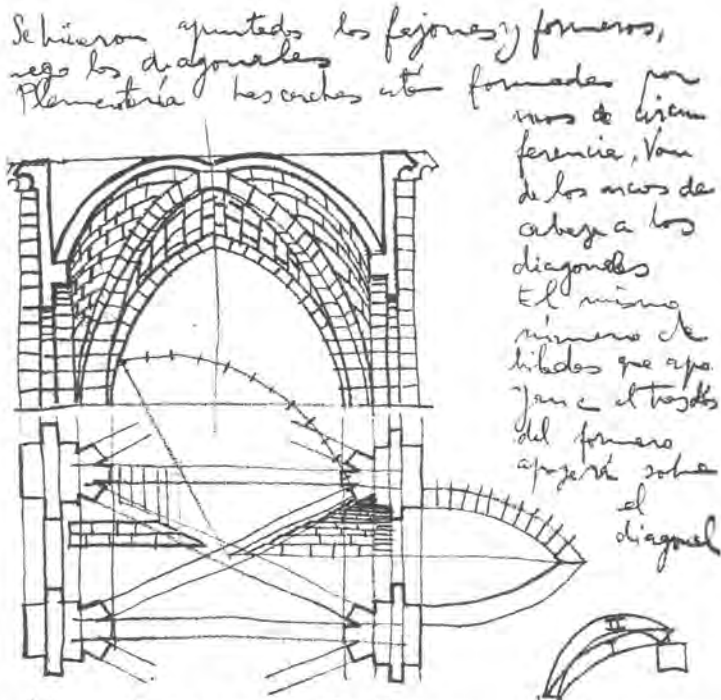 Se hicieron apuntados los fajones y formeros,
uego los diagonales
Plementería Las cerchas están formadas por
rcos de circun
ferencia, Van
de los arcos de
cabeza a los
diagonales
El mismo
número de
hiladas que apo
yan en el trasdós
del formero
apoyará sobre
el
diagonal